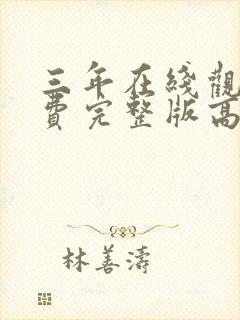 三年在綫觀
費完整版高
林善濤